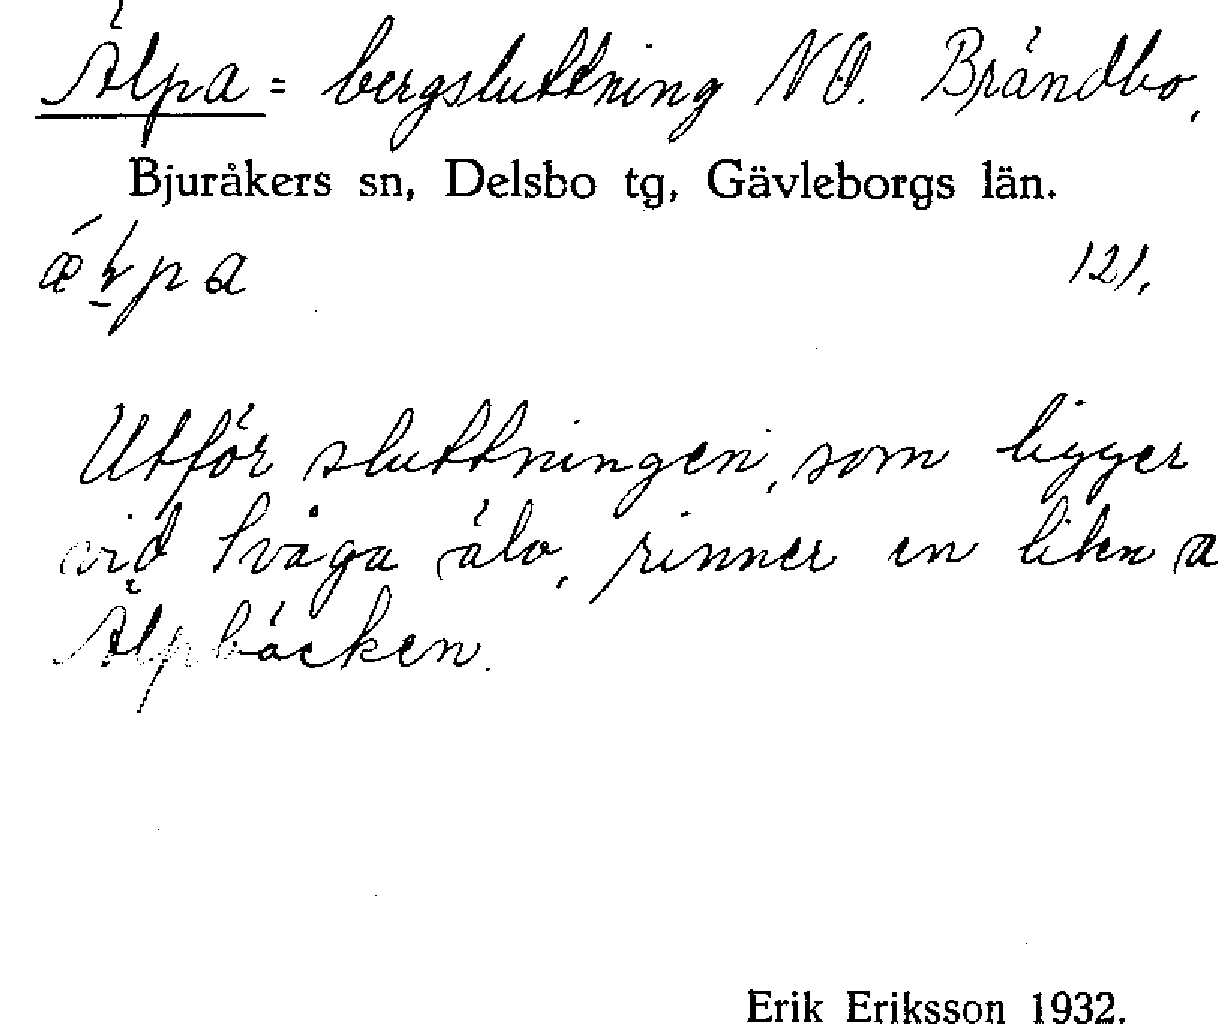 Älpa = bergsluttning NO. Brändbo.
Bjuråkers sn, Delsbo tg, Gävleborgs län.
121.
Utför sluttningen, som ligger
vid Svåga älv, rinner en liten
Älpbäcken.
Erik Eriksson 1932.